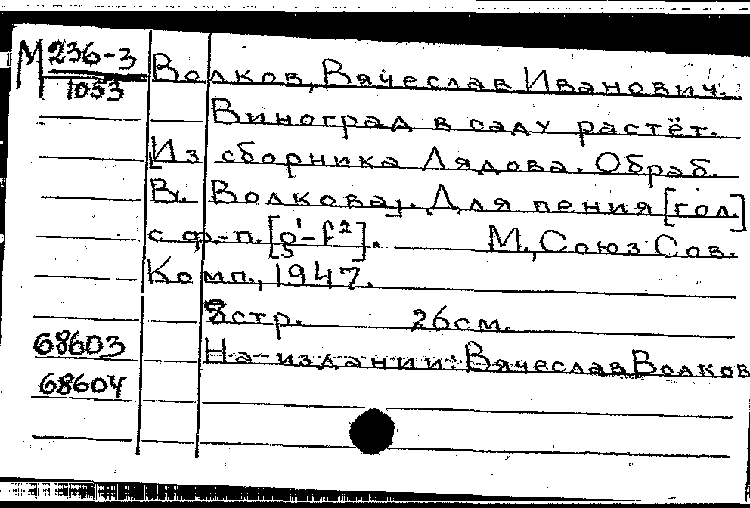 М 236-3
1053
Волков, Вячеслав Иванович.
Виноград в саду растёт.
[Из сборника Лядова. Обраб.
В. Волкова]. Для пения [гол.]
с ф.-п. [g¹-f²]. М., Союз Сов.
Комп., 1947.
8стр. 26см.
68603 На издании: Вячеслав Волков
68604